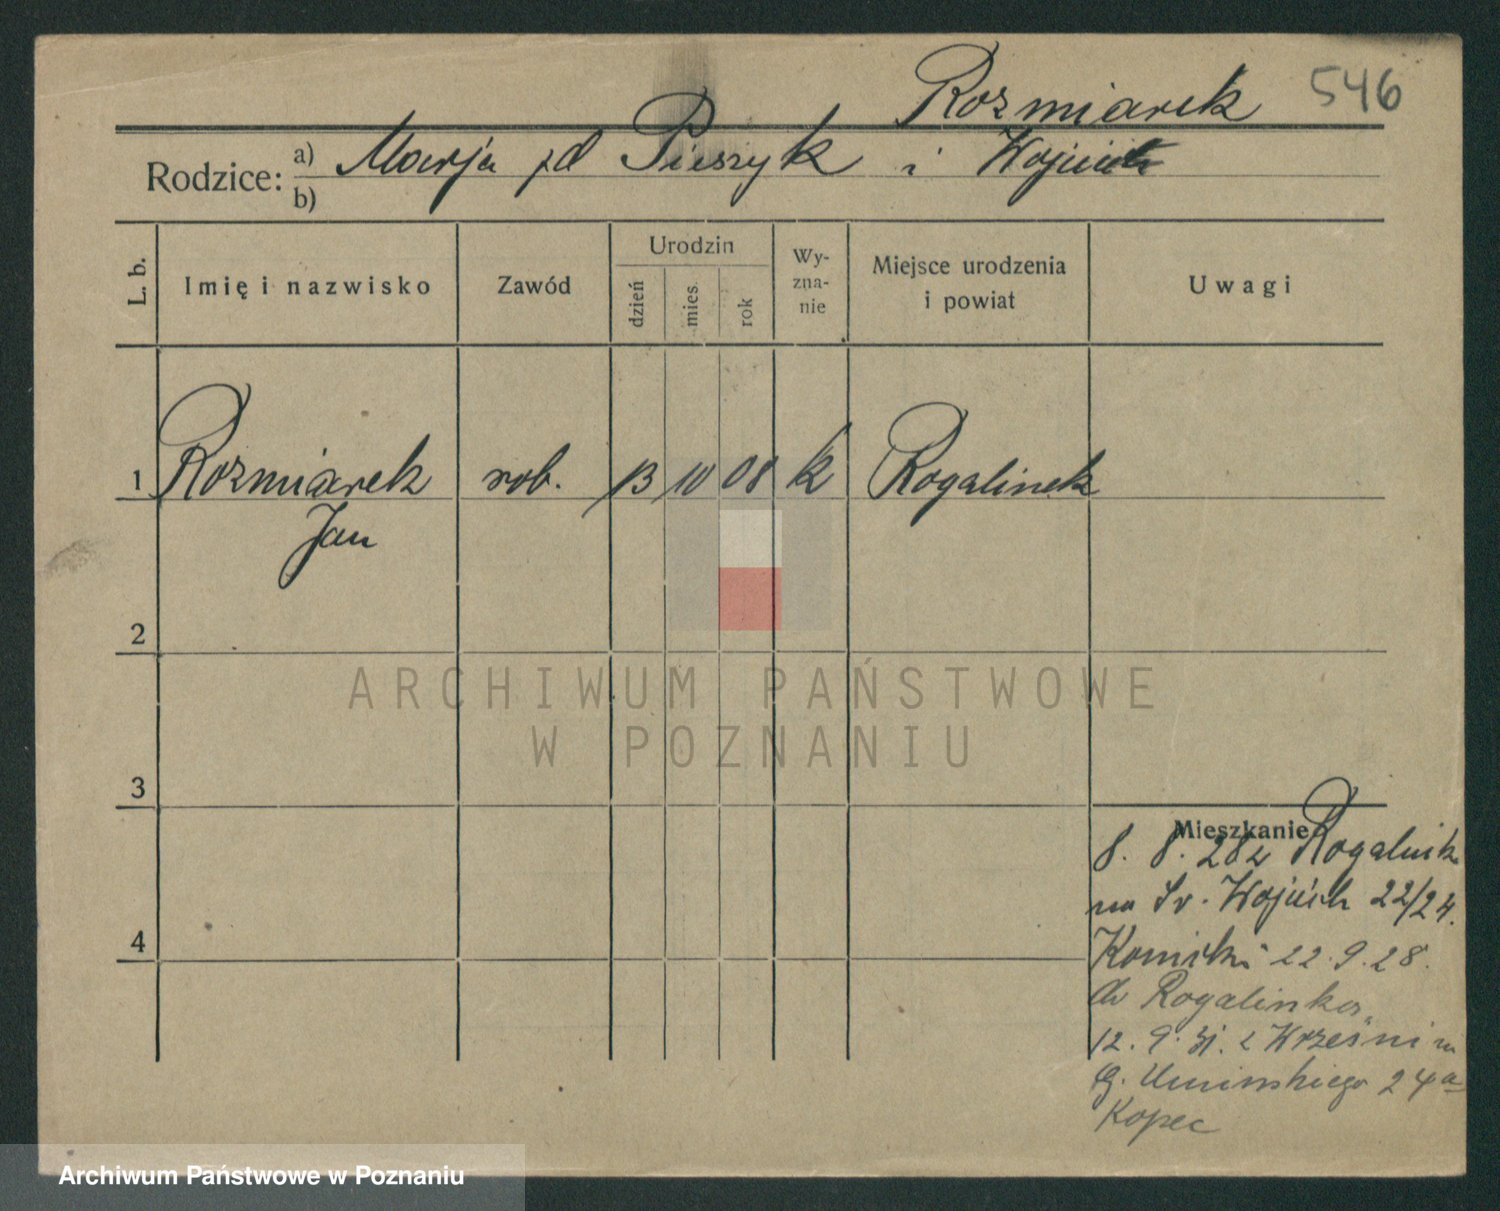 546
Rozmiarek
Rodzice: a) Marja zd Pieszyk i Wojciech
b)
L. b. Imię i nazwisko Zawód Urodzin dzień mies. rok Wy-zna-nie Miejsce urodzenia i powiat Uwagi
1 Rozmiarek rob. 13 10 08 k Rogalinek
Jan
2
ARCHIWUM PAŃSTWOWE
W POZNANIU
3
Mieszkanie
8. 8. 28 z Rogalink
na Św. Wojciech 22/24.
22.9.28.
do Rogalinka
12. 9. 31. z Wrześni na
G. Umińskiego 24a
Kopec
4
Archiwum Państwowe w Poznaniu